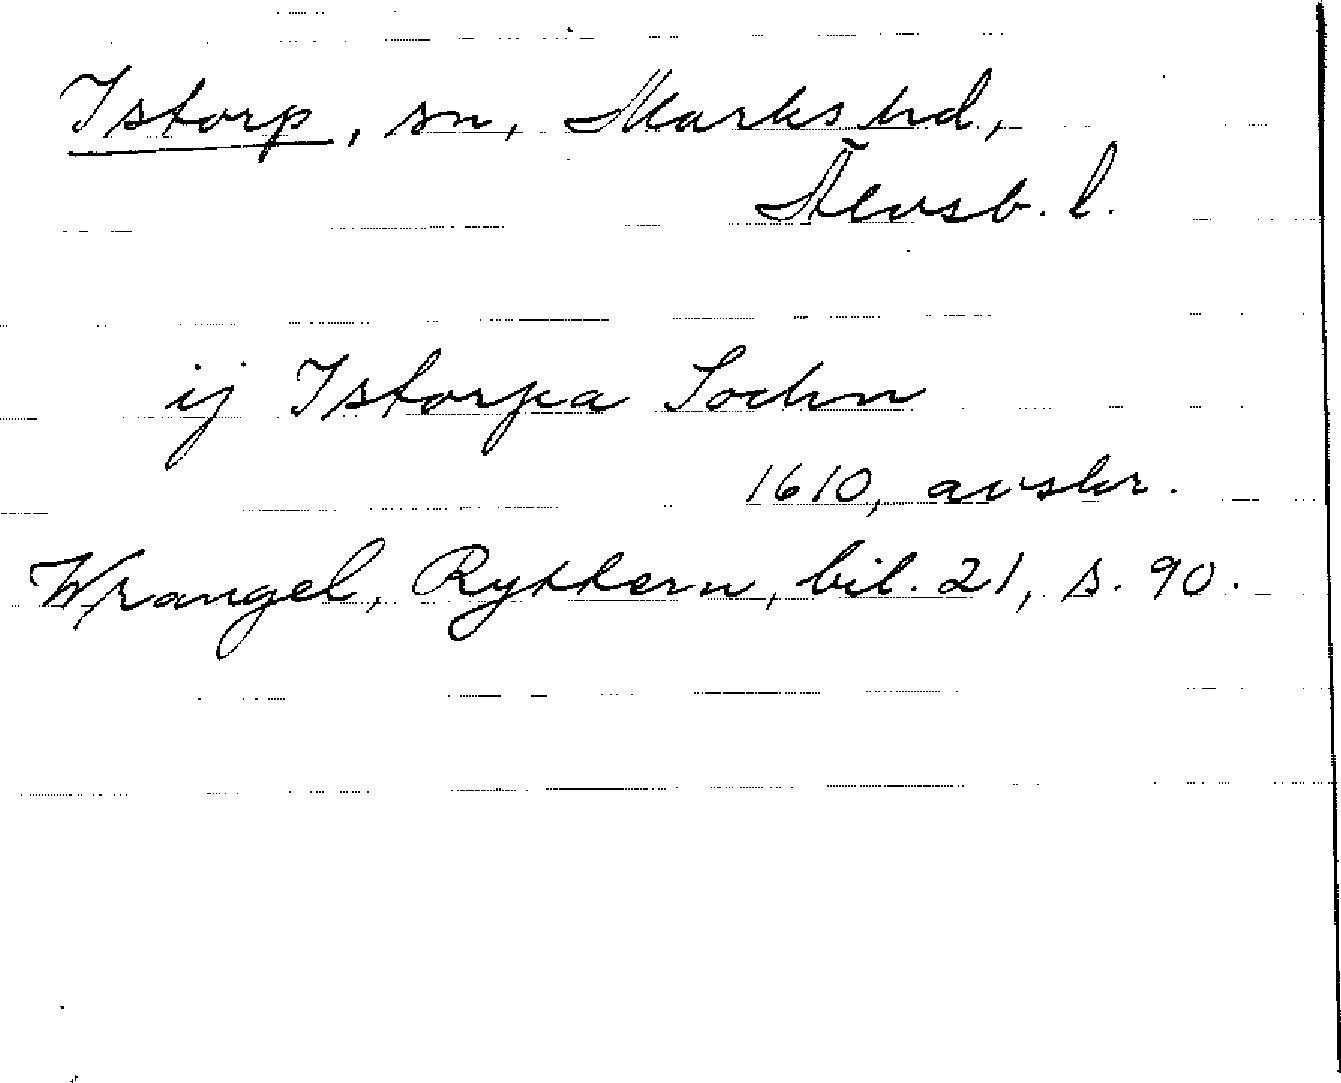 Istorp, sn, Marks hd,
Älvsb. l.
ij Istorpa Sochn
1610, avskr.
Wrangel, Ryttern, bil. 21, s. 90.